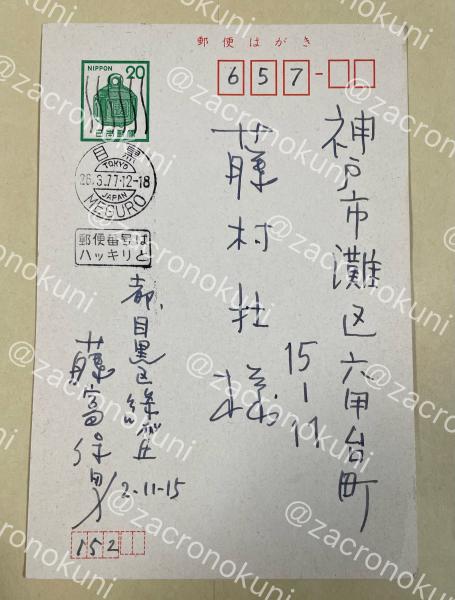 郵便はがき
657
神戸市灘区六甲台町
15-11
藤村壮様
NIPPON
20
日本郵便
目黒
TOKYO
26.3.77.12-18
JAPAN
MEGURO
郵便番号は
ハッキリと
都、目黒区緑が丘
2-11-15
藤富保男
152
@zacronokuni